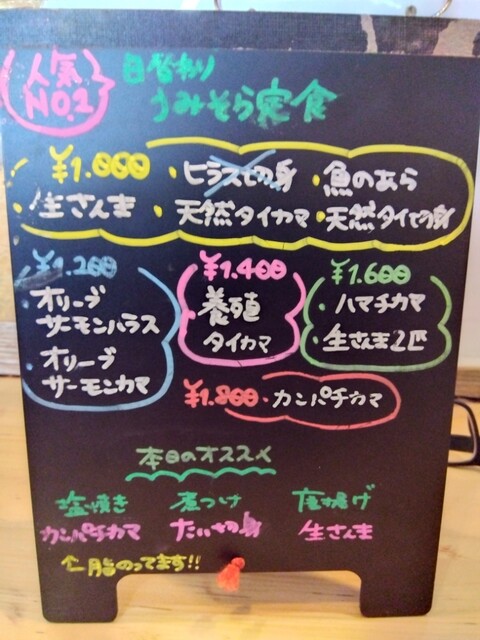 人気
NO.1
日替わり
うみそら定食
¥1.000
・ヒラスての身
・魚のあら
・生さんま
・天然タイカマ
・天然タイての身
¥1.200
・オリーブ
サーモンハラス
・オリーブ
サーモンカマ
¥1.400
・養殖
タイカマ
¥1.600
・ハマチカマ
・生さんま2匹
¥1.800・カンパチカマ
本日のオススメ
塩焼き
カンパチカマ
煮つけ
たいての身
唐揚げ
生さんま
↑脂のってます!!